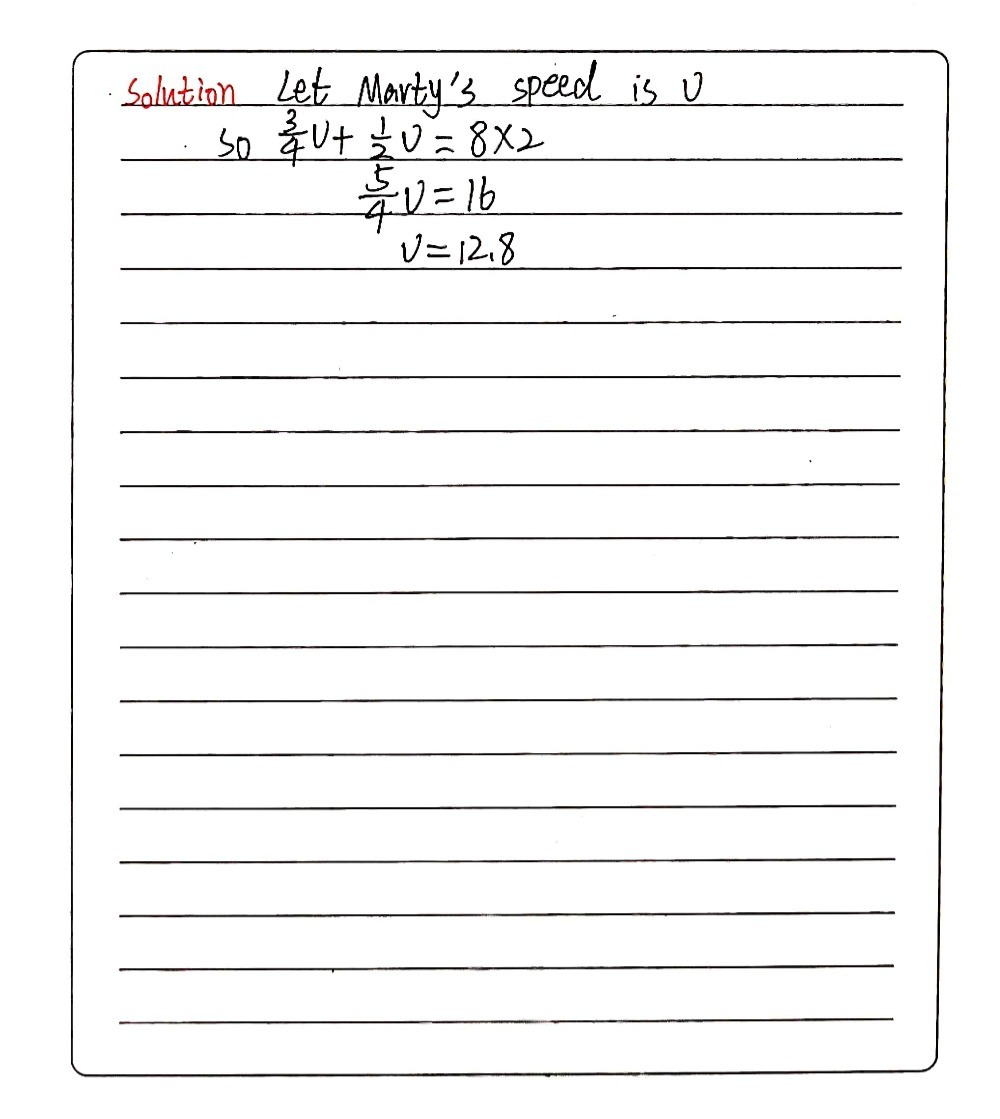 Solution Let Marty's speed is v
so 3/4 v + 1/2 v = 8×2
5/4 v = 16
v = 12.8